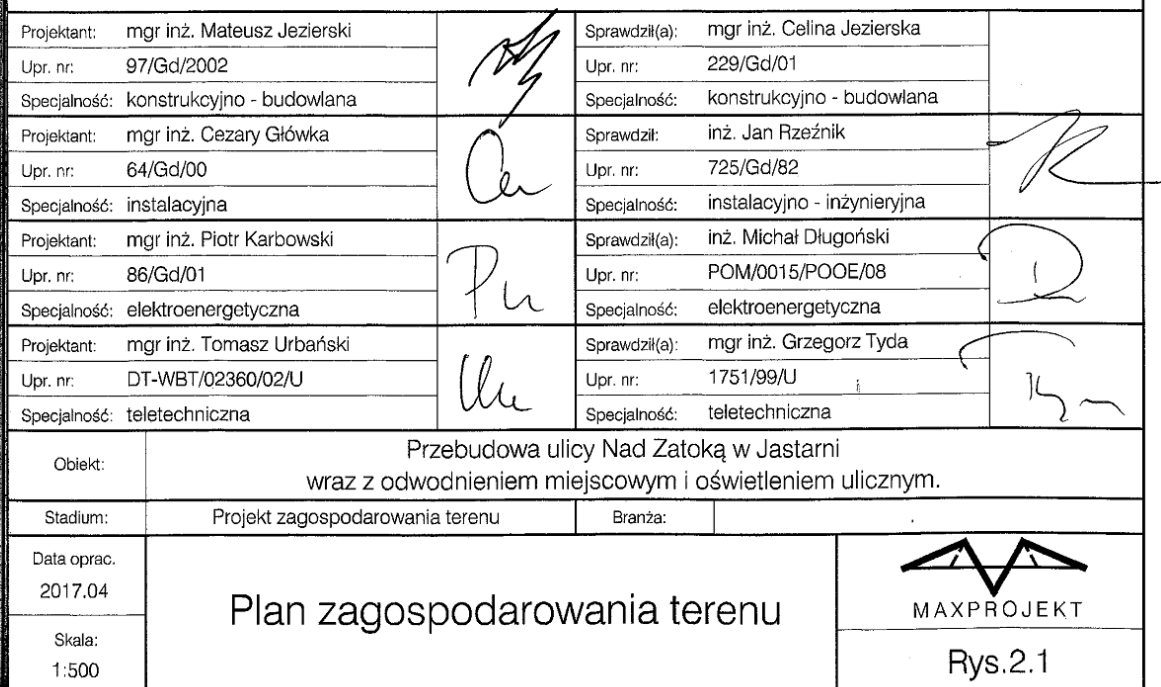 Projektant: mgr inż. Mateusz Jezierski Sprawdził(a): mgr inż. Celina Jezierska
Upr. nr: 97/Gd/2002 Upr. nr: 229/Gd/01
Specjalność: konstrukcyjno - budowlana Specjalność: konstrukcyjno - budowlana
Projektant: mgr inż. Cezary Główka Sprawdził: inż. Jan Rzeźnik
Upr. nr: 64/Gd/00 Upr. nr: 725/Gd/82
Specjalność: instalacyjna Specjalność: instalacyjno - inżynieryjna
Projektant: mgr inż. Piotr Karbowski Sprawdził(a): inż. Michał Długoński
Upr. nr: 86/Gd/01 Upr. nr: POM/0015/POOE/08
Specjalność: elektroenergetyczna Specjalność: elektroenergetyczna
Projektant: mgr inż. Tomasz Urbański Sprawdził(a): mgr inż. Grzegorz Tyda
Upr. nr: DT-WBT/02360/02/U Upr. nr: 1751/99/U
Specjalność: teletechniczna Specjalność: teletechniczna
Obiekt: Przebudowa ulicy Nad Zatoką w Jastarni
wraz z odwodnieniem miejscowym i oświetleniem ulicznym.
Stadium: Projekt zagospodarowania terenu Branża:
Data oprac.
2017.04
Skala:
1:500
Plan zagospodarowania terenu
MAXPROJEKT
Rys.2.1